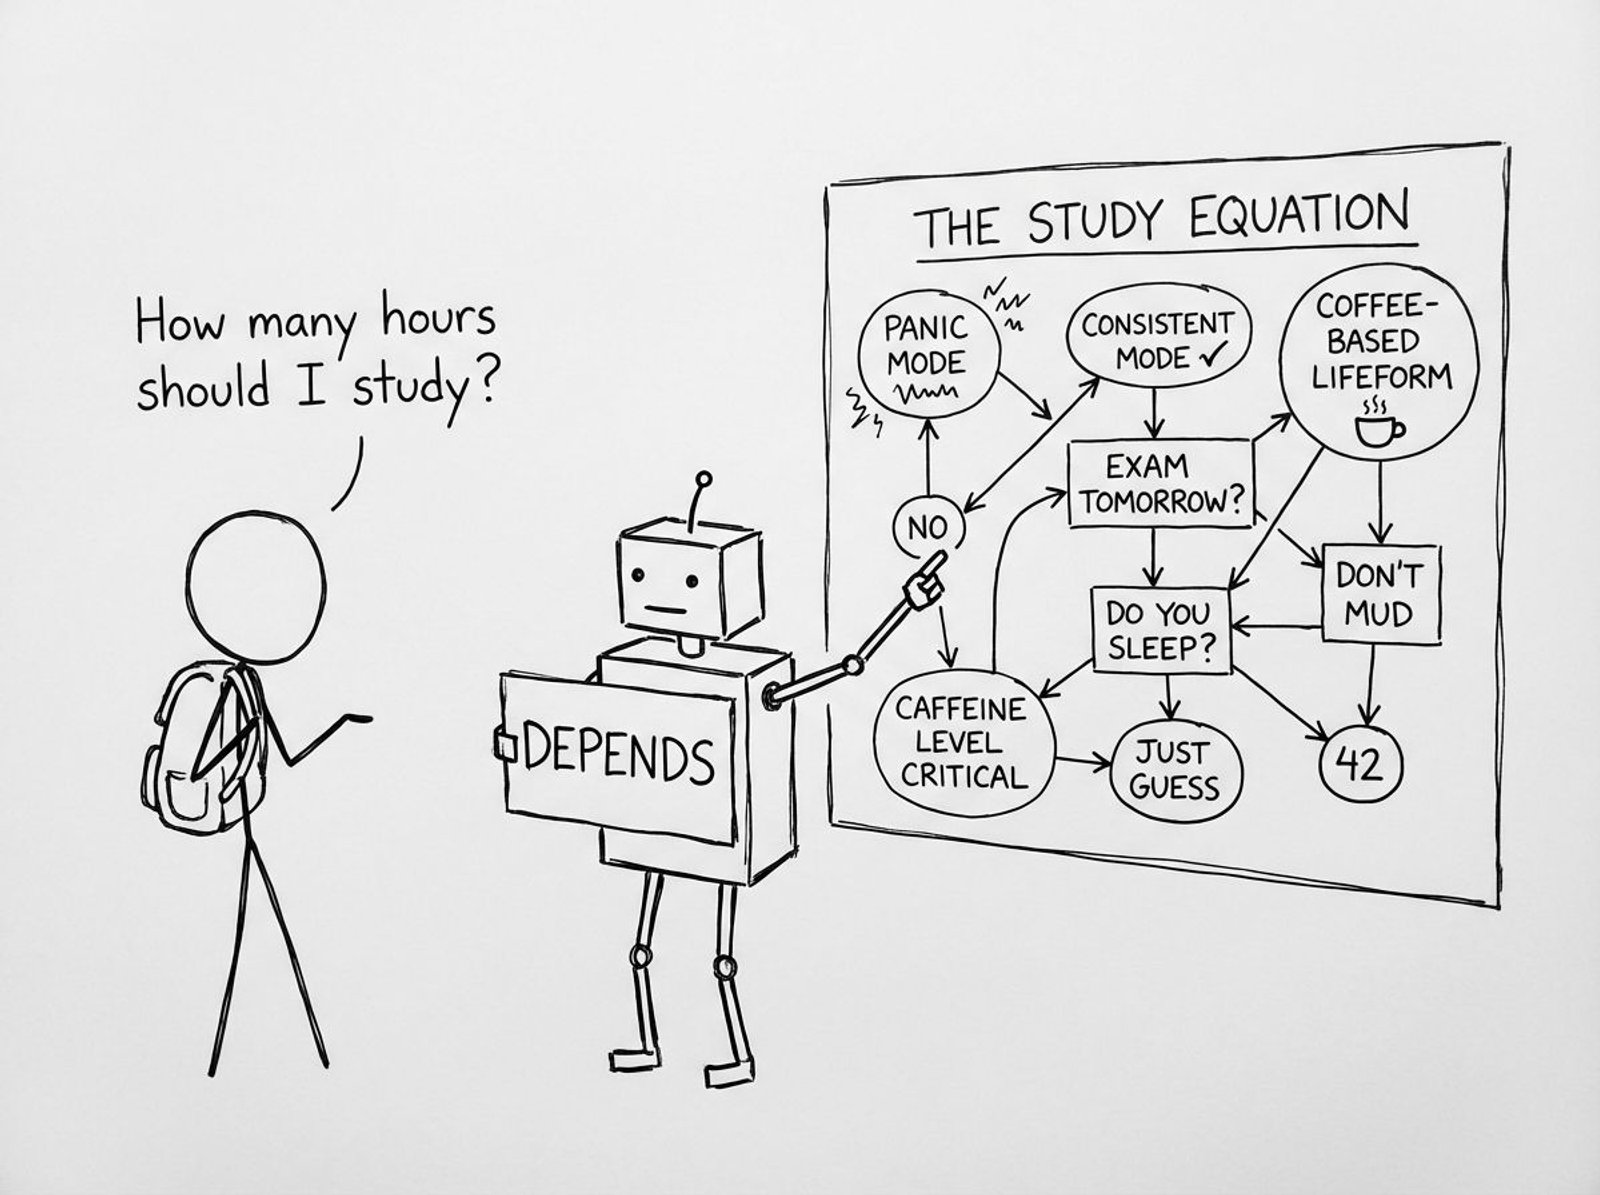 How many hours
should I study?
DEPENDS
THE STUDY EQUATION
PANIC
MODE
CONSISTENT
MODE ✓
COFFEE-
BASED
LIFEFORM
EXAM
TOMORROW?
NO
DON'T
MUD
DO YOU
SLEEP?
CAFFEINE
LEVEL
CRITICAL
JUST
GUESS
42